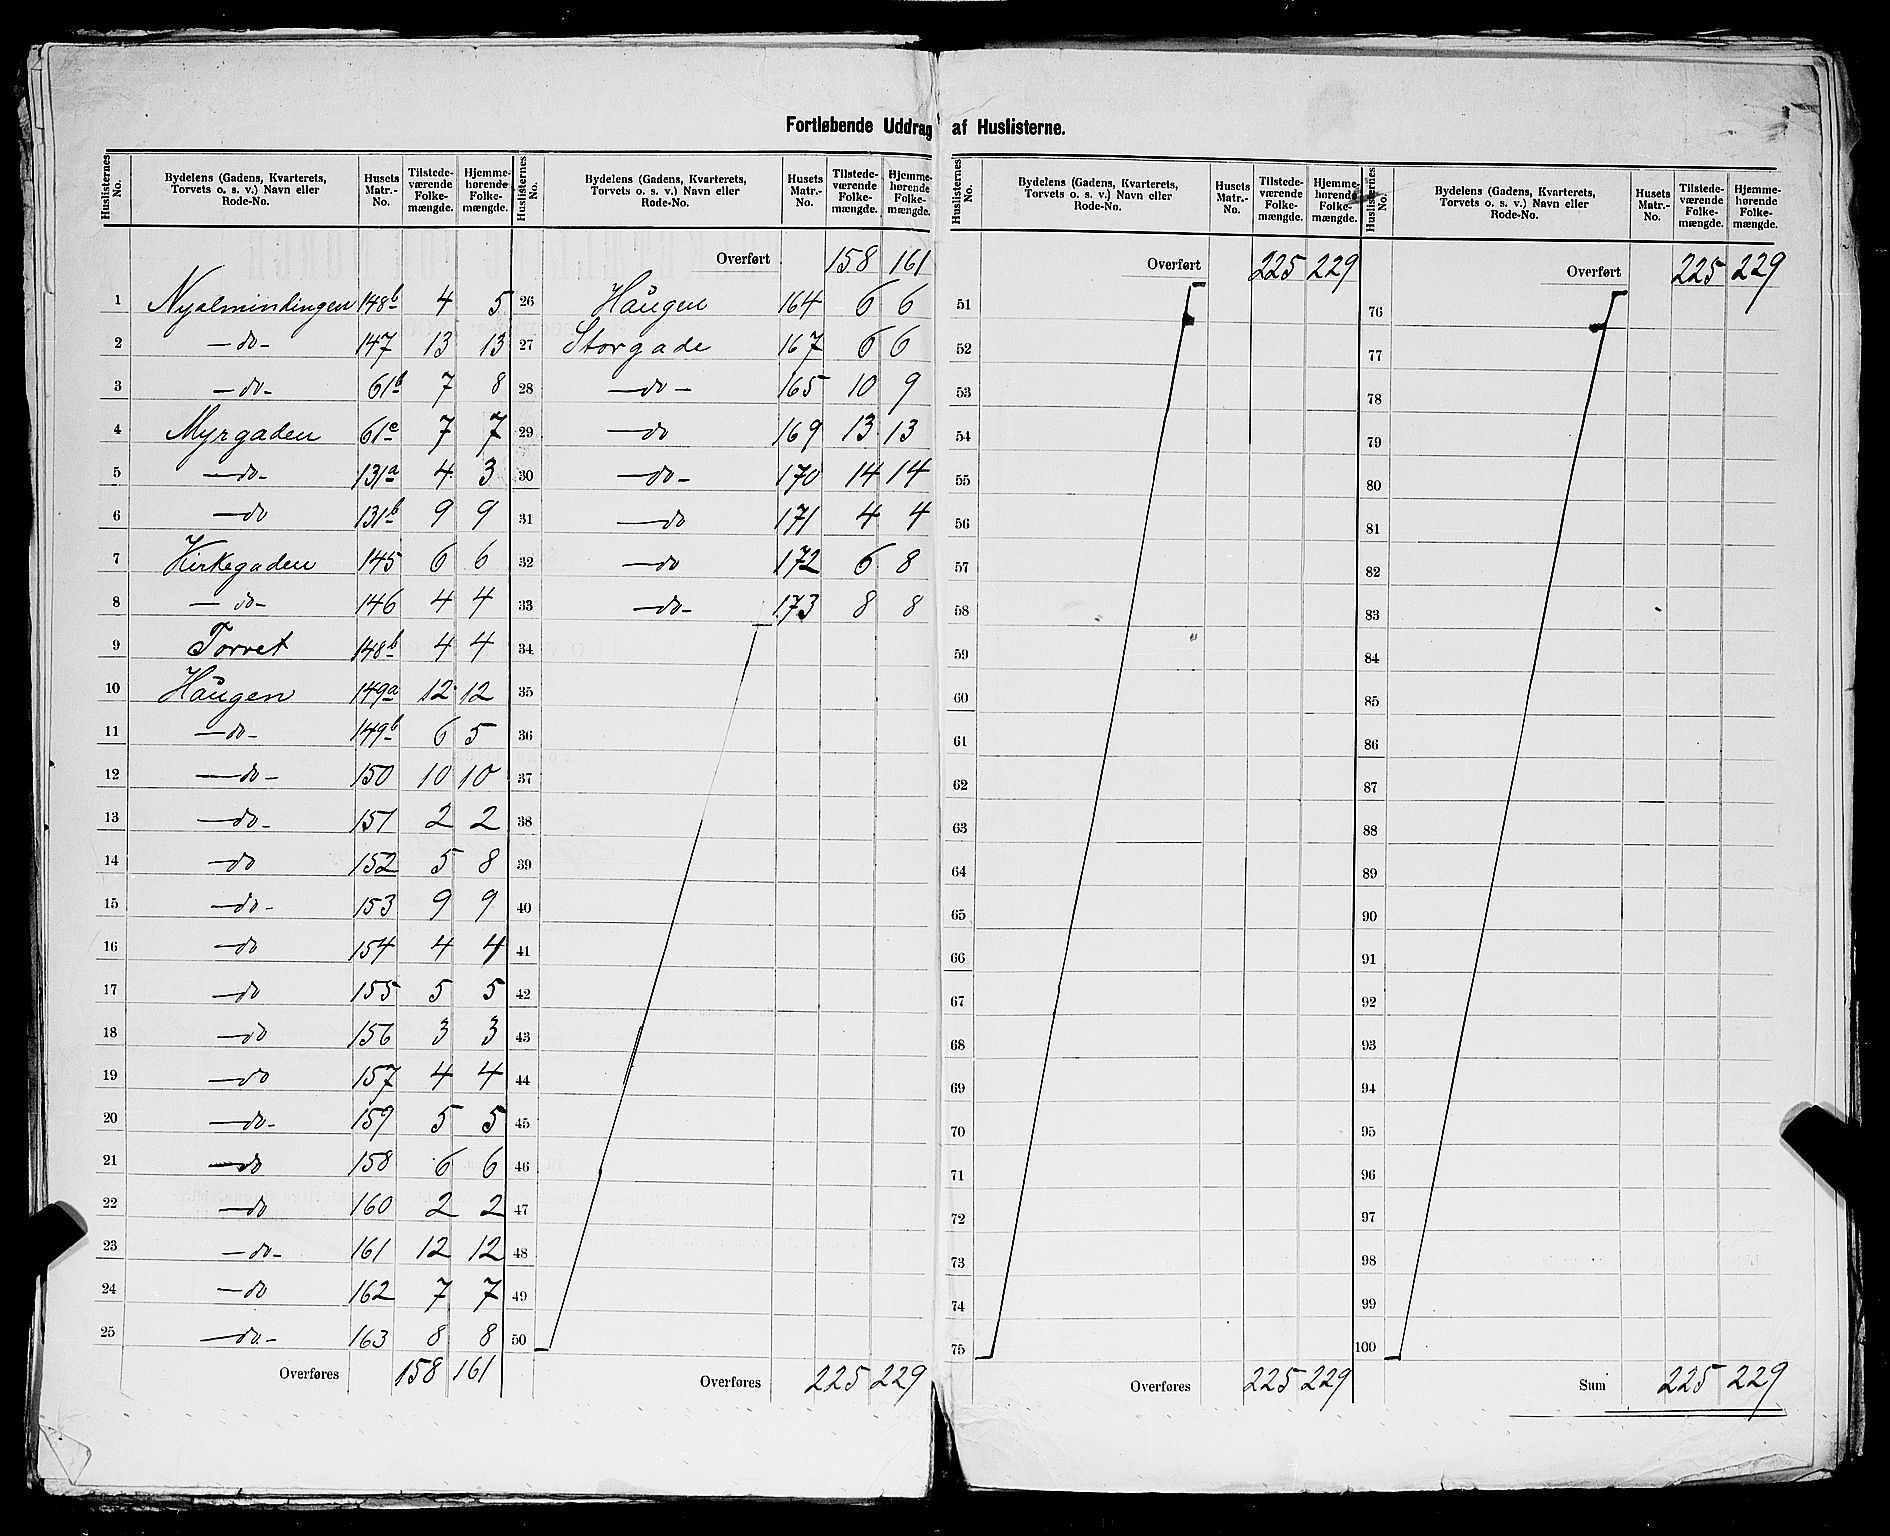 Fortløbende Uddrag af Huslisterne.
Huslisternes No. | Bydelens (Gadens, Kvarterets, Torvets o. s. v.) Navn eller Rode-No. | Husets Matr.-No. | Tilstedeværende Folkemængde. | Hjemmehørende Folkemængde.
1 Nyalmindingen 148b 4 5
2 —do- 147 13 13
3 —do- 61b 7 8
4 Myrgaden 61c 7 7
5 —do- 131a 4 3
6 —do 131b 9 9
7 Kirkegaden 145 6 6
8 —do- 146 4 4
9 Torvet 148b 4 4
10 Haugen 149a 12 12
11 —do- 149b 6 5
12 —do- 150 10 10
13 —do- 151 2 2
14 —do 152 5 8
15 —do- 153 9 9
16 —do 154 4 4
17 —do 155 5 5
18 —do 156 3 3
19 —do 157 4 4
20 —do- 159 5 5
21 —do 158 6 6
22 —do 160 2 2
23 —do- 161 12 12
24 —do 162 7 7
25 —do- 163 8 8
Overføres 158 161
Huslisternes No. | Bydelens (Gadens, Kvarterets, Torvets o. s. v.) Navn eller Rode-No. | Husets Matr.-No. | Tilstedeværende Folkemængde. | Hjemmehørende Folkemængde.
Overført 158 161
26 Haugen 164 6 6
27 Storgade 167 6 6
28 —do- 165 10 9
29 —do 169 13 13
30 —do- 170 14 14
31 —do 171 4 4
32 —do 172 6 8
33 —do- 173 8 8
34
35
36
37
38
39
40
41
42
43
44
45
46
47
48
49
50
Overføres 225 229
Huslisternes No. | Bydelens (Gadens, Kvarterets, Torvets o. s. v.) Navn eller Rode-No. | Husets Matr.-No. | Tilstedeværende Folkemængde. | Hjemmehørende Folkemængde.
Overført 225 229
51
52
53
54
55
56
57
58
59
60
61
62
63
64
65
66
67
68
69
70
71
72
73
74
75
Overføres 225 229
Huslisternes No. | Bydelens (Gadens, Kvarterets, Torvets o. s. v.) Navn eller Rode-No. | Husets Matr.-No. | Tilstedeværende Folkemængde. | Hjemmehørende Folkemængde.
Overført 225 229
76
77
78
79
80
81
82
83
84
85
86
87
88
89
90
91
92
93
94
95
96
97
98
99
100
Sum 225 229